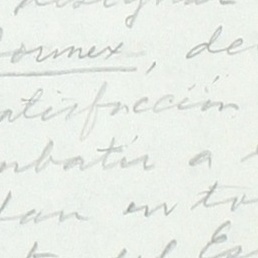 ormex, de
atisfacción
mbatir a
dan en to
Es